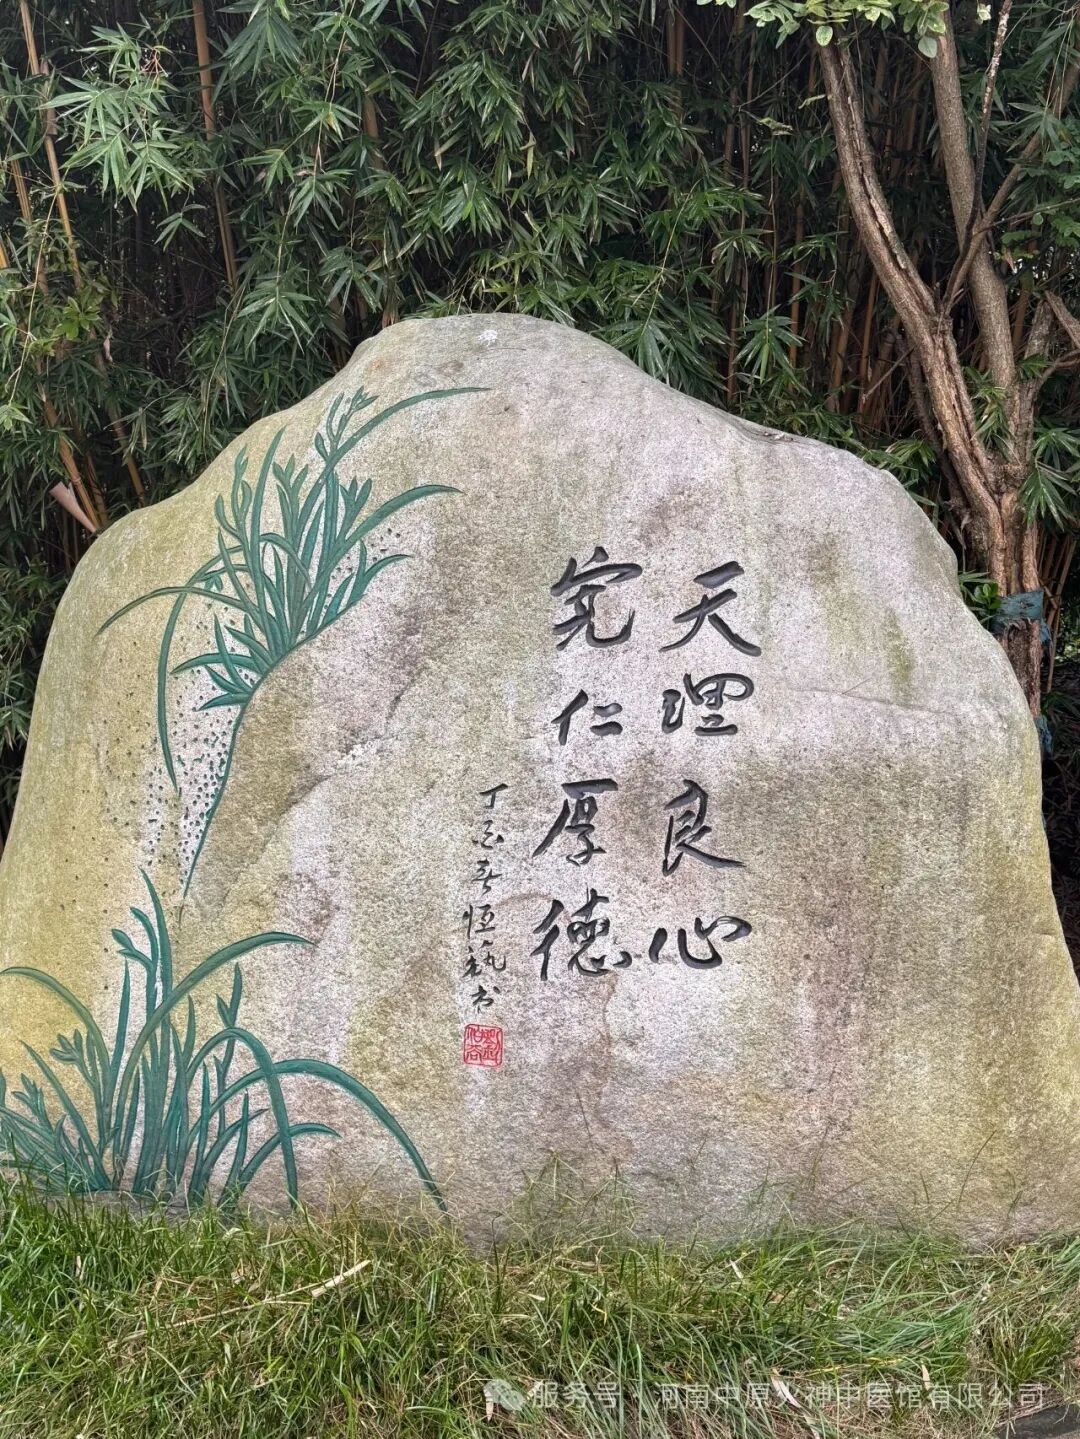 天理良心
宽仁厚德
丁酉春恒藝书
服务号 · 河南中原火神中医馆有限公司